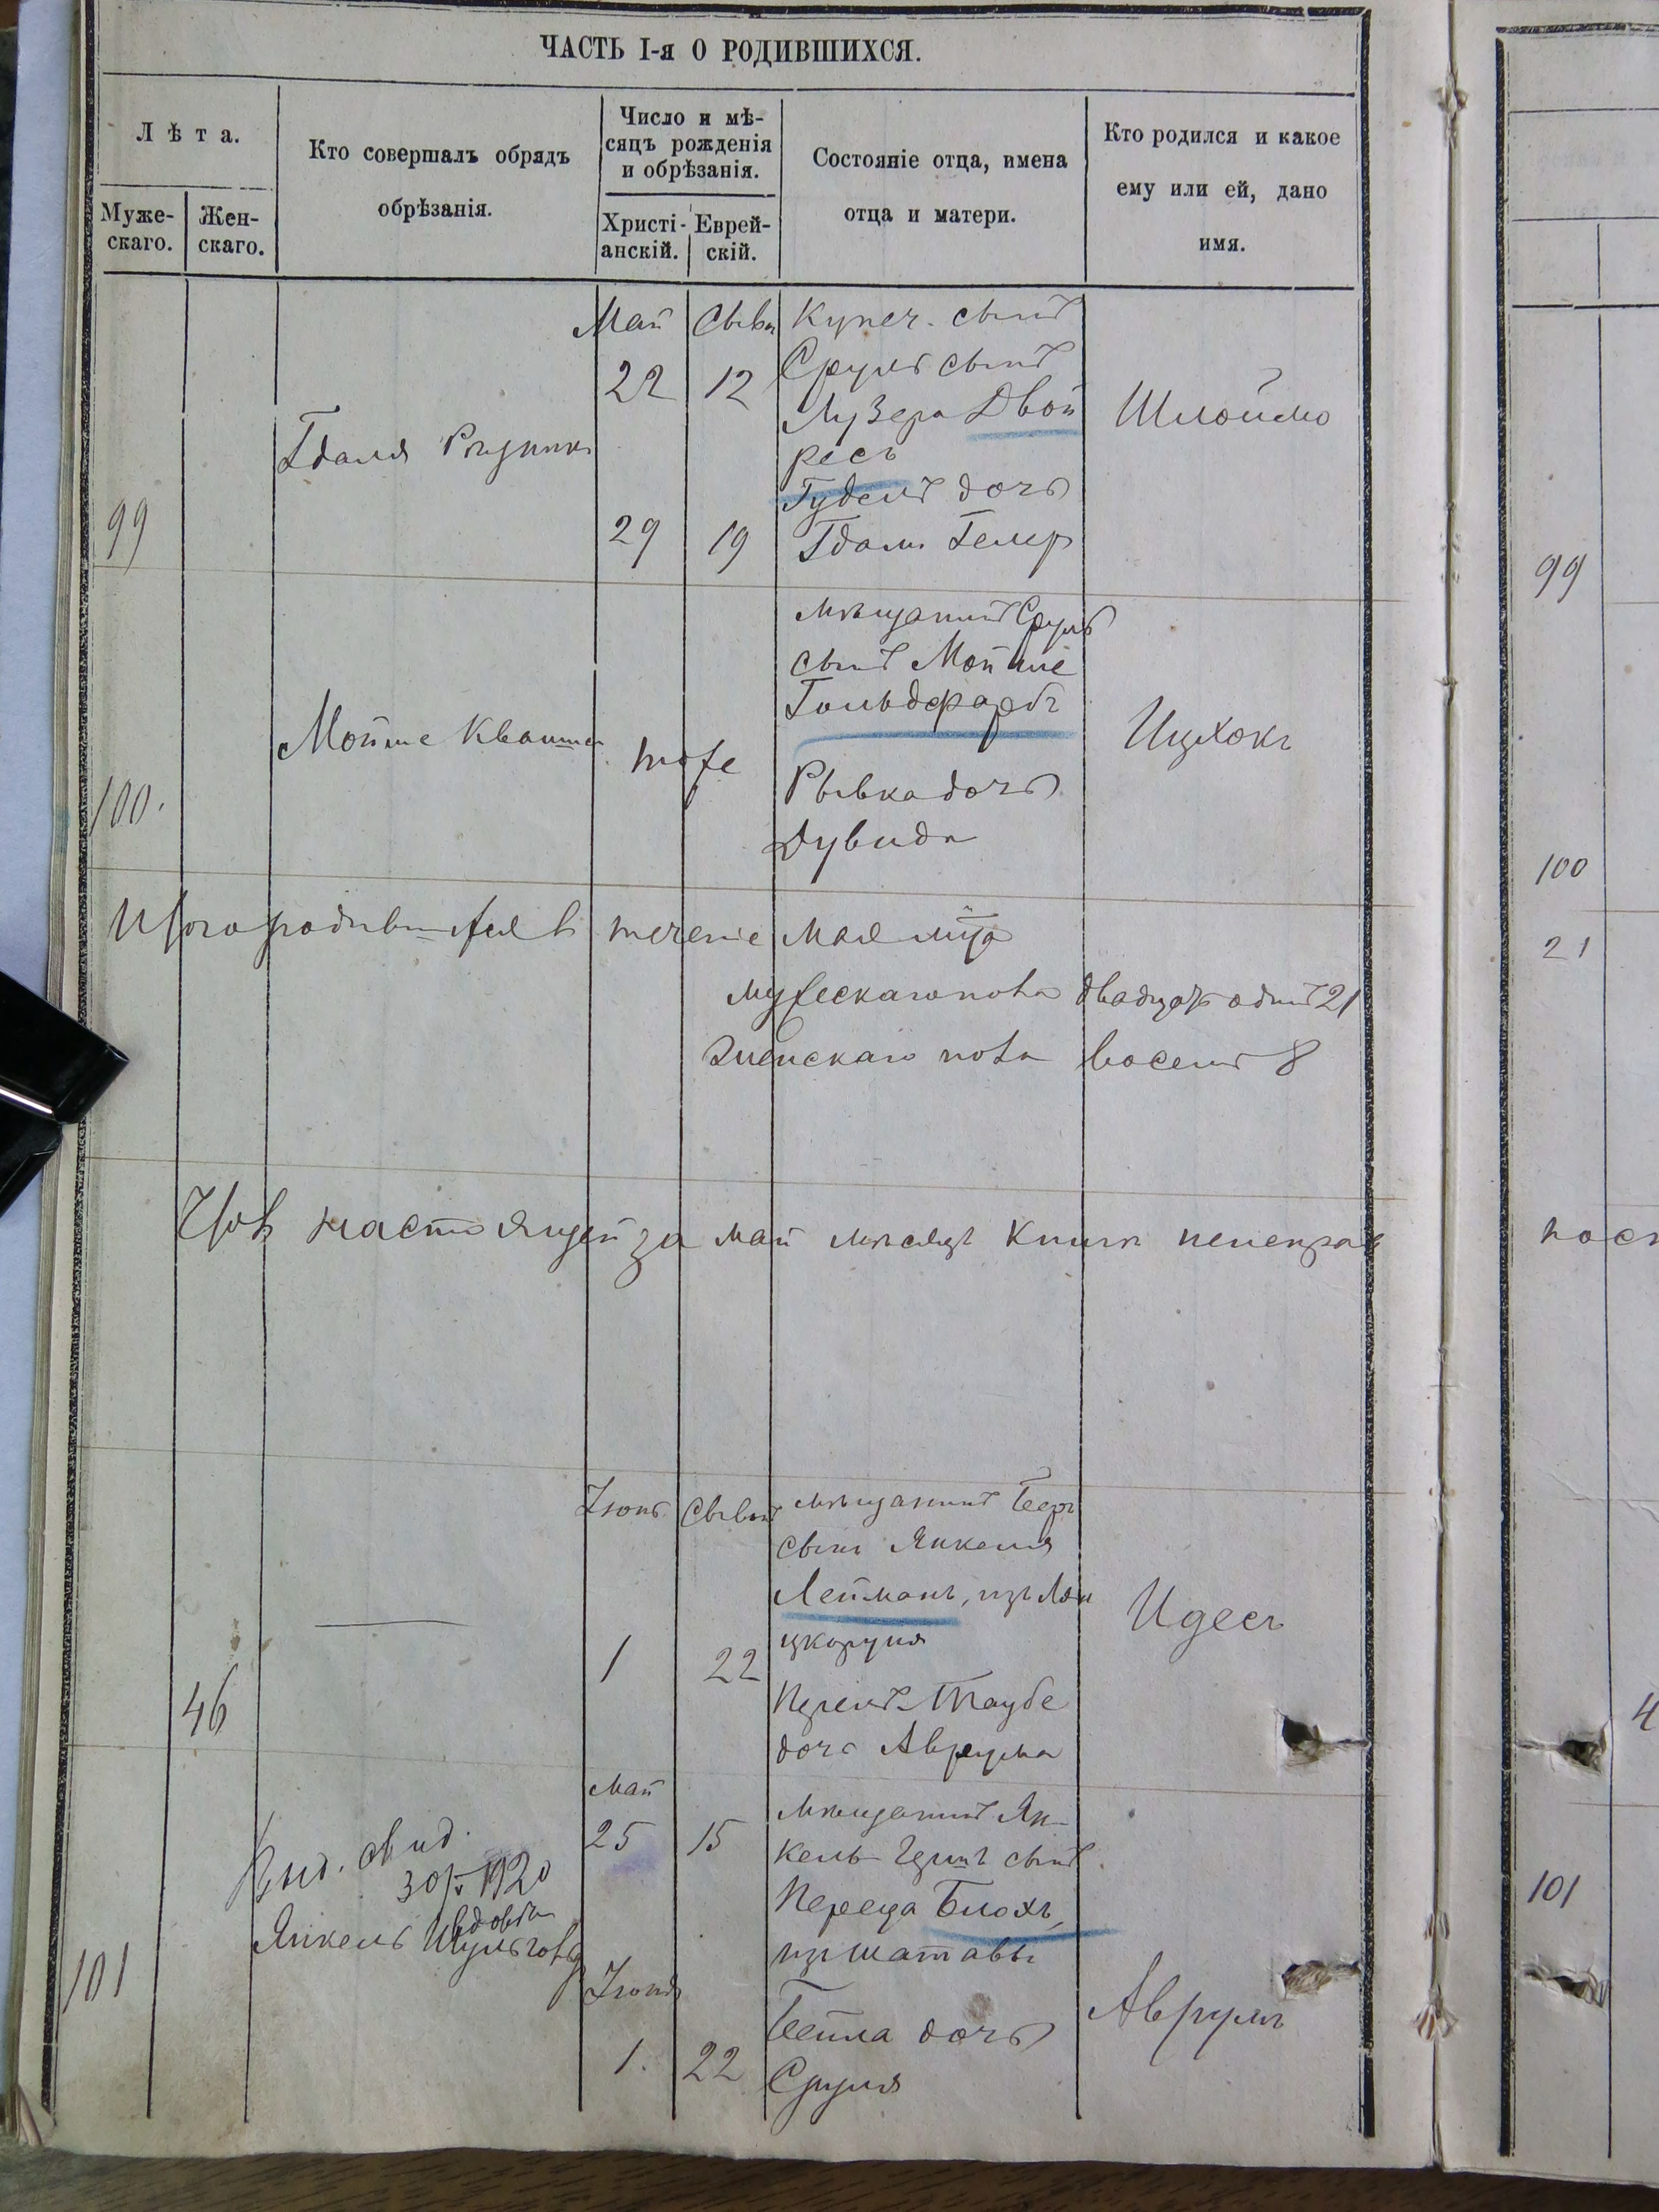 ЧАСТЬ I-я О РОДИВШИХСЯ.
Лѣта.
Муже-
скаго.
Жен-
скаго.
Кто совершалъ обрядъ
обрѣзанія.
Число и мѣ-
сяцъ рожденія
и обрѣзанія.
Христі-
анскій.
Еврей-
скій.
Состояніе отца, имена
отца и матери.
Кто родился и какое
ему или ей, дано
имя.
99
Гдаля Рудыкъ
Май
22
29
Сыва
12
19
Купеч. сынъ
Сруль сынъ
Лузера Двой
ресъ
Гудель дочь
Гдали Гелер
Шлоймо
100.
Мойше Квашна
тоже
мѣщанинъ Сруль
сынъ Мойше
Гольдфарбъ
Рывка дочь
Дувида
Ицхокъ
Итого родившихся въ теченіе мая мца
мужескаго пола двадцать одинъ 21
Женскаго пола восемь 8
Что въ настоящей за май мѣсяцъ книги неисправ
46
Іюнь
1
Сыванъ
22
мѣщанинъ Беръ
сынъ Янкеля
Лейманъ, изъ Лян
цкоруня
Перель-Таубе
дочь Аврума
Идесъ
101
Выд. свид.
30/V 1920
Янкель
вдовы
Май
25
15
Іюнь
1.
22
мѣщанинъ Ян-
кель Гершъ сынъ
Переца Блохъ,
изъ Шатавы
Бейла дочь
Сруля
Аврумъ
99
100
21
пос
4
101